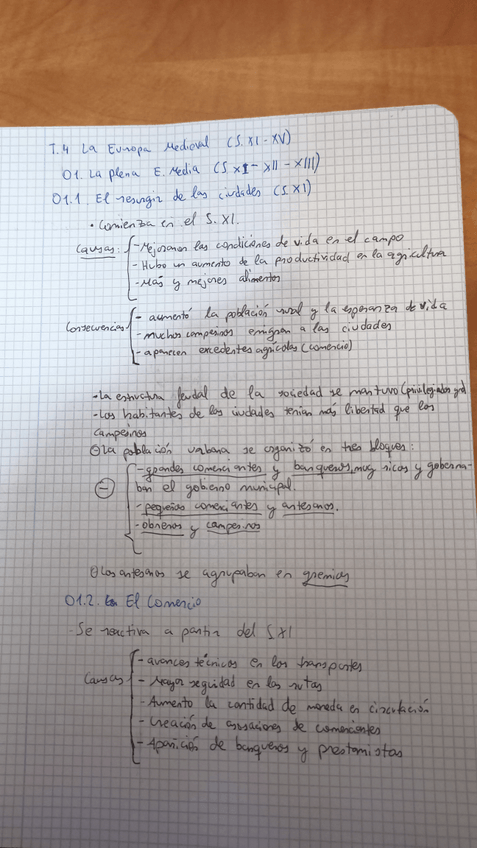 T.4 La Europa Medieval (S. XI - XV)
01. La plena E. Media (S XI - XII - XIII)
01.1 El resurgir de las ciudades (S XI)
• Comienza en el S. XI.
Causas: - Mejoraron las condiciones de vida en el campo
- Hubo un aumento de la productividad en la agricultura
- Más y mejores alimentos
Consecuencias - aumentó la población rural y la esperanza de vida
- muchos campesinos emigran a las ciudades
- aparecen excedentes agrícolas (comercio)
• La estructura feudal de la sociedad se mantuvo (privilegiados y
• Los habitantes de las ciudades tenían más libertad que los
campesinos
La población urbana se organizó en tres bloques:
- grandes comerciantes y banqueros, muy ricos y goberna-
ban el gobierno municipal.
- pequeños comerciantes y artesanos.
- obreros y campesinos
Los artesanos se agrupaban en gremios
01.2. El Comercio
· Se reactiva a partir del S XI
Causas - avances técnicos en los transportes
- Mayor seguridad en las rutas
- Aumento la cantidad de moneda en circulación
- Creación de asociaciones de comerciantes
- Aparición de banqueros y prestamistas